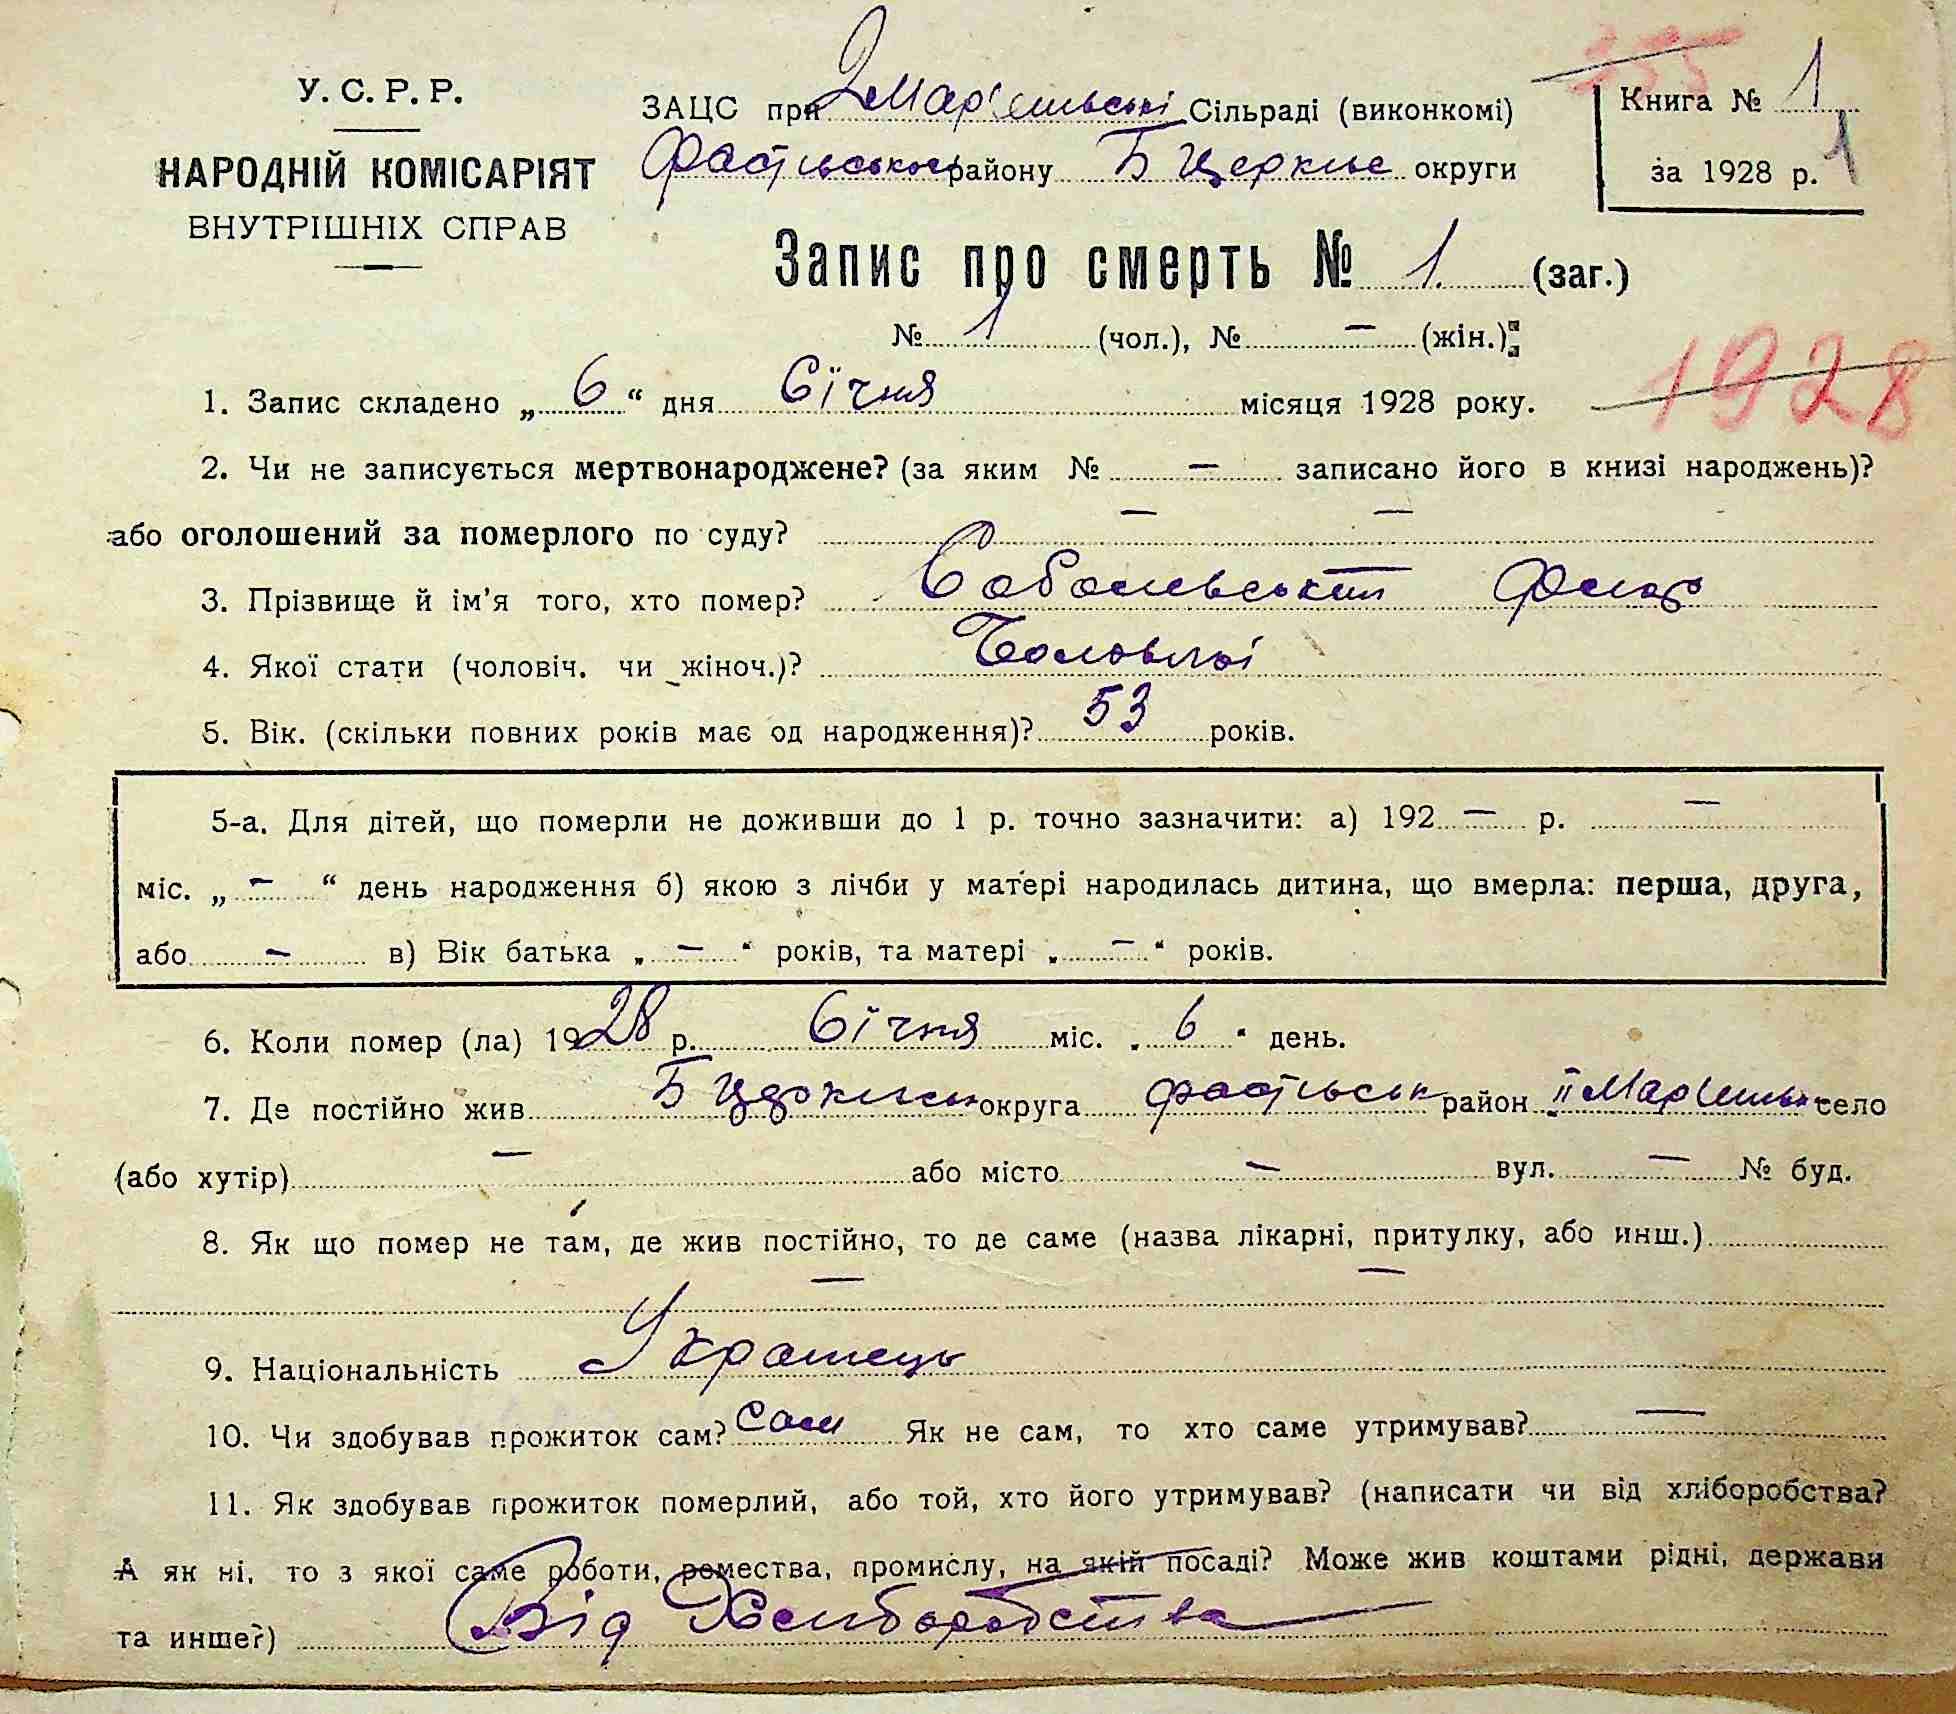 У. С. Р. Р.
НАРОДНІЙ КОМІСАРІЯТ
ВНУТРІШНІХ СПРАВ
ЗАЦС при Сільраді (виконкомі)
Фастівського району Б Церкис округи
155
Книга № 1
за 1928 р. 1
Запис про смерть № 1. (заг.)
№ 1 (чол.), № — (жін.)
1. Запис складено „ 6 “ дня Січня місяця 1928 року.
1928
2. Чи не записується мертвонароджене? (за яким № — записано його в книзі народжень)?
або оголошений за померлого по суду? — —
3. Прізвище й ім’я того, хто помер? Собольвський Федор
4. Якої стати (чоловіч. чи жіноч.)? Чоловічої
5. Вік. (скільки повних років має од народження)? 53 років.
5-а. Для дітей, що померли не доживши до 1 р. точно зазначити: а) 192 — р. —
міс. „ — “ день народження б) якою з лічби у матері народилась дитина, що вмерла: перша, друга,
або — в) Вік батька „ — “ років, та матері „ — “ років.
6. Коли помер (ла) 1928 р. Січня міс. „ 6 “ день.
7. Де постійно жив Б округа Фастівськ район село
(або хутір) — або місто — вул. — № буд.
8. Як що помер не там, де жив постійно, то де саме (назва лікарні, притулку, або инш.)
— —
9. Національність Українець
10. Чи здобував прожиток сам? Сам Як не сам, то хто саме утримував? —
11. Як здобував прожиток померлий, або той, хто його утримував? (написати чи від хліборобства?
А як ні, то з якої саме роботи, ремества, промислу, на якій посаді? Може жив коштами рідні, держави
та инше?) Від Хлиборобства